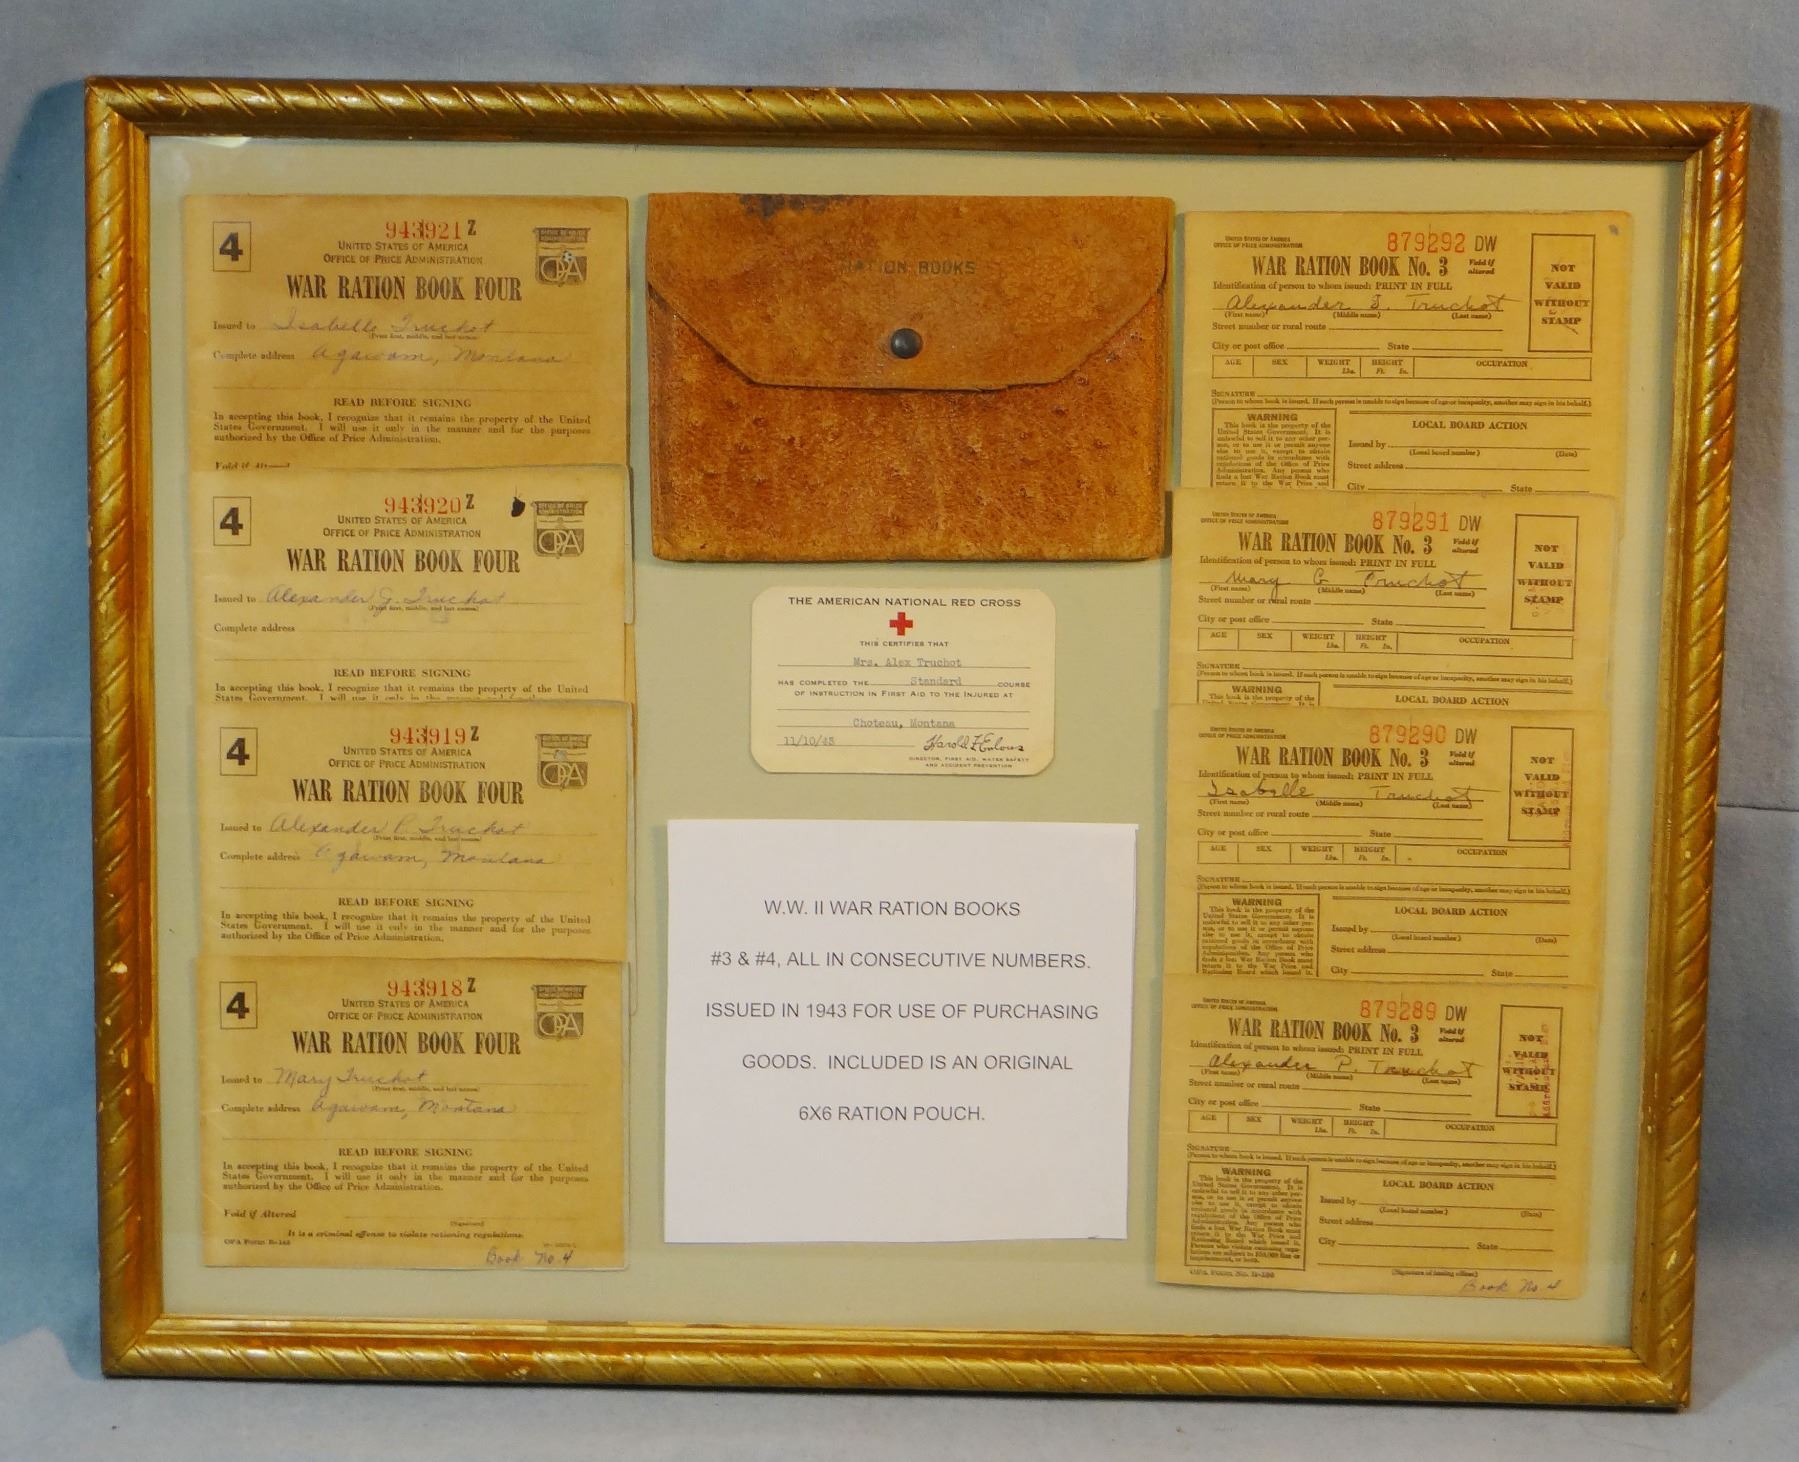 4
943921 Z
UNITED STATES OF AMERICA
OFFICE OF PRICE ADMINISTRATION
OFFICE OF PRICE ADMINISTRATION
OPA
WAR RATION BOOK FOUR
Issued to Isabelle Truchot
(Print first, middle, and last names)
Complete address Agawam, Montana
READ BEFORE SIGNING
In accepting this book, I recognize that it remains the property of the United
States Government. I will use it only in the manner and for the purposes
authorized by the Office of Price Administration.
Void if Altered
4
943920 Z
UNITED STATES OF AMERICA
OFFICE OF PRICE ADMINISTRATION
OFFICE OF PRICE ADMINISTRATION
OPA
WAR RATION BOOK FOUR
Issued to Alexander J. Truchot
(Print first, middle, and last names)
Complete address
READ BEFORE SIGNING
In accepting this book, I recognize that it remains the property of the United
States Government. I will use it only in the manner and for the purposes
4
943919 Z
UNITED STATES OF AMERICA
OFFICE OF PRICE ADMINISTRATION
OPA
WAR RATION BOOK FOUR
Issued to Alexander P. Truchot
(Print first, middle, and last names)
Complete address Agawam, Montana
READ BEFORE SIGNING
In accepting this book, I recognize that it remains the property of the United
States Government. I will use it only in the manner and for the purposes
authorized by the Office of Price Administration.
4
943918 Z
UNITED STATES OF AMERICA
OFFICE OF PRICE ADMINISTRATION
OPA
WAR RATION BOOK FOUR
Issued to Mary Truchot
(Print first, middle, and last names)
Complete address Agawam, Montana
READ BEFORE SIGNING
In accepting this book, I recognize that it remains the property of the United
States Government. I will use it only in the manner and for the purposes
authorized by the Office of Price Administration.
Void if Altered
(Signature)
It is a criminal offense to violate rationing regulations.
OPA Form R-145
Book No. 4
RATION BOOKS
THE AMERICAN NATIONAL RED CROSS
THIS CERTIFIES THAT
Mrs. Alex Truchot
HAS COMPLETED THE Standard COURSE
OF INSTRUCTION IN FIRST AID TO THE INJURED AT
Choteau, Montana
11/10/43
DIRECTOR, FIRST AID, WATER SAFETY
AND ACCIDENT PREVENTION
W.W. II WAR RATION BOOKS
#3 & #4, ALL IN CONSECUTIVE NUMBERS.
ISSUED IN 1943 FOR USE OF PURCHASING
GOODS. INCLUDED IS AN ORIGINAL
6X6 RATION POUCH.
UNITED STATES OF AMERICA
OFFICE OF PRICE ADMINISTRATION
879292 DW
WAR RATION BOOK No. 3 Void if altered
NOT VALID WITHOUT STAMP
Identification of person to whom issued: PRINT IN FULL
Alexander J. Truchot
(First name) (Middle name) (Last name)
Street number or rural route
City or post office State
AGE SEX WEIGHT Lbs. HEIGHT Ft. In. OCCUPATION
SIGNATURE
(Person to whom book is issued. If such person is unable to sign because of age or incapacity, another may sign in his behalf.)
WARNING
This book is the property of the
United States Government. It is
unlawful to sell it to any other per-
son, or to use it or permit anyone
else to use it, except to obtain
rationed goods in accordance with
regulations of the Office of Price
Administration. Any person who
finds a lost War Ration Book must
return it to the War Price and
LOCAL BOARD ACTION
Issued by
(Local board number) (Date)
Street address
City State
UNITED STATES OF AMERICA
OFFICE OF PRICE ADMINISTRATION
879291 DW
WAR RATION BOOK No. 3 Void if altered
NOT VALID WITHOUT STAMP
Identification of person to whom issued: PRINT IN FULL
Mary G Truchot
(First name) (Middle name) (Last name)
Street number or rural route
City or post office State
AGE SEX WEIGHT Lbs. HEIGHT Ft. In. OCCUPATION
SIGNATURE
(Person to whom book is issued. If such person is unable to sign because of age or incapacity, another may sign in his behalf.)
WARNING
This book is the property of the
LOCAL BOARD ACTION
UNITED STATES OF AMERICA
OFFICE OF PRICE ADMINISTRATION
879290 DW
WAR RATION BOOK No. 3 Void if altered
NOT VALID WITHOUT STAMP
Identification of person to whom issued: PRINT IN FULL
Isabelle Truchot
(First name) (Middle name) (Last name)
Street number or rural route
City or post office State
AGE SEX WEIGHT Lbs. HEIGHT Ft. In. OCCUPATION
SIGNATURE
(Person to whom book is issued. If such person is unable to sign because of age or incapacity, another may sign in his behalf.)
WARNING
This book is the property of the
United States Government. It is
unlawful to sell it to any other per-
son, or to use it or permit anyone
else to use it, except to obtain
rationed goods in accordance with
regulations of the Office of Price
Administration. Any person who
finds a lost War Ration Book must
return it to the War Price and
Rationing Board which issued it.
LOCAL BOARD ACTION
Issued by
(Local board number) (Date)
Street address
City State
UNITED STATES OF AMERICA
OFFICE OF PRICE ADMINISTRATION
879289 DW
WAR RATION BOOK No. 3 Void if altered
NOT VALID WITHOUT STAMP
Identification of person to whom issued: PRINT IN FULL
Alexander P. Truchot
(First name) (Middle name) (Last name)
Street number or rural route
City or post office State
AGE SEX WEIGHT Lbs. HEIGHT Ft. In. OCCUPATION
SIGNATURE
(Person to whom book is issued. If such person is unable to sign because of age or incapacity, another may sign in his behalf.)
WARNING
This book is the property of the
United States Government. It is
unlawful to sell it to any other per-
son, or to use it or permit anyone
else to use it, except to obtain
rationed goods in accordance with
regulations of the Office of Price
Administration. Any person who
finds a lost War Ration Book must
return it to the War Price and
Rationing Board which issued it.
Persons who violate rationing regu-
lations are subject to $10,000 fine or
imprisonment, or both.
LOCAL BOARD ACTION
Issued by
(Local board number) (Date)
Street address
City State
(Signature of issuing officer)
OPA Form No. R-130
Book No 4